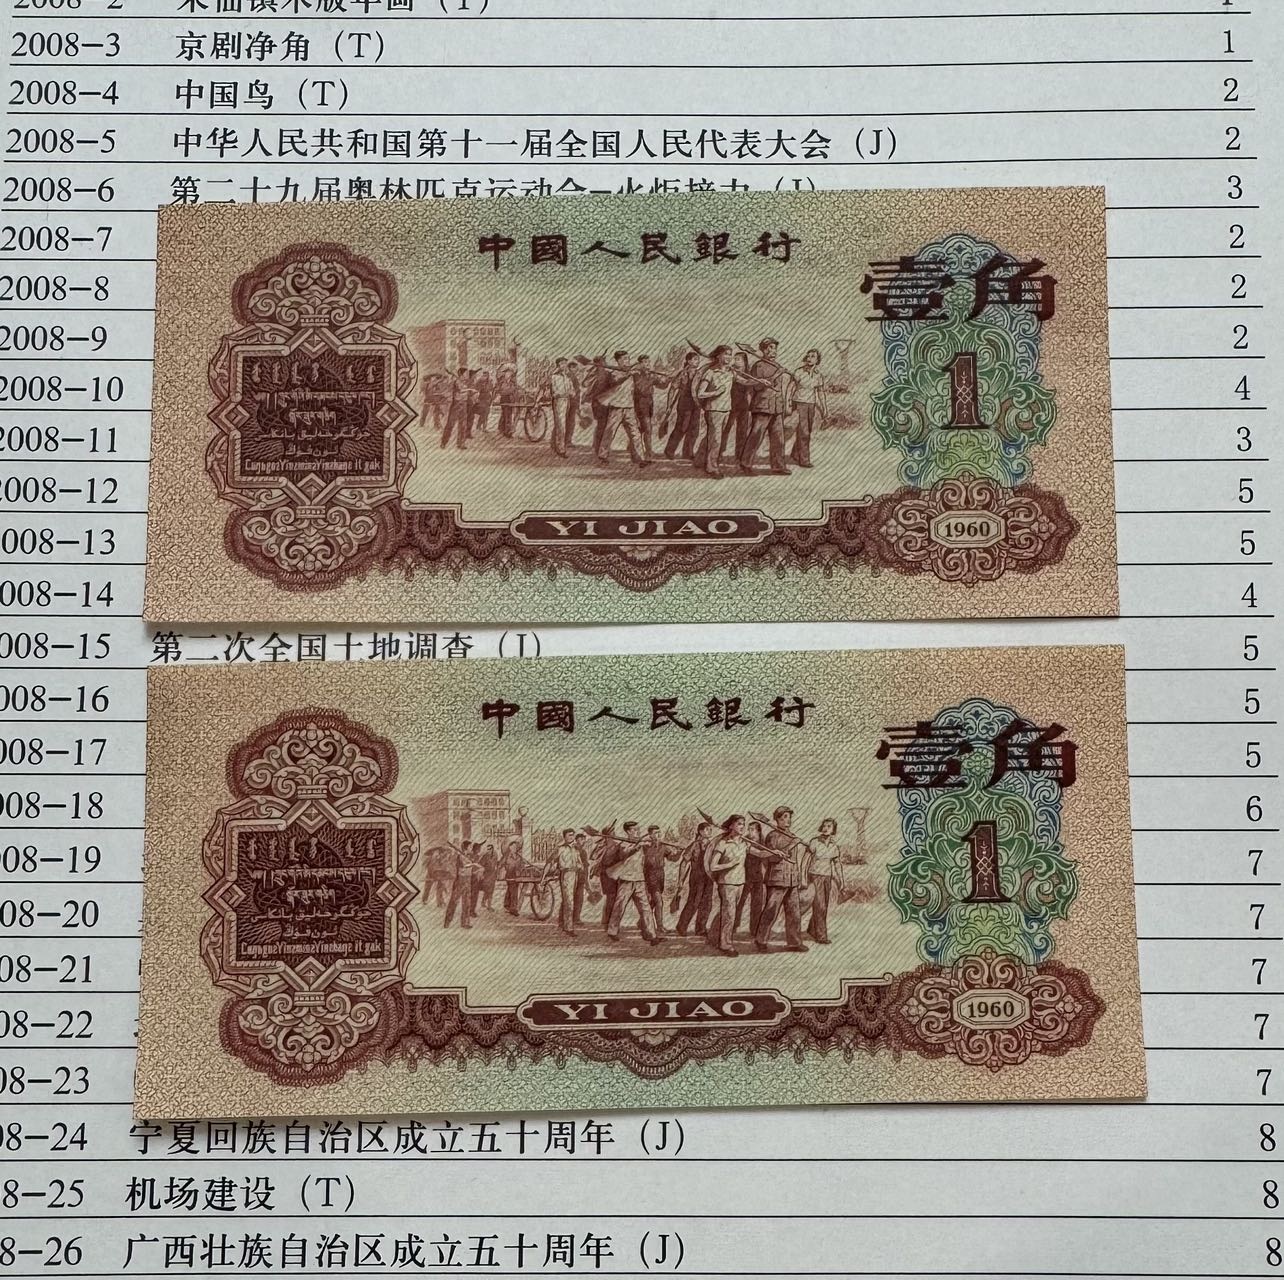 2008-3 京剧净角（T） 1
2008-4 中国鸟（T） 2
2008-5 中华人民共和国第十一届全国人民代表大会（J） 2
2008-6 第二十九届奥林匹克运动会-火炬接力（J） 3
2008-7 2
2008-8 2
2008-9 2
2008-10 4
2008-11 3
2008-12 5
008-13 5
008-14 4
中國人民銀行
壹角
1
YI JIAO
1960
008-15 第二次全国土地调查（J） 5
008-16 5
008-17 5
008-18 6
08-19 7
08-20 7
08-21 7
08-22 7
08-23 7
中國人民銀行
壹角
1
YI JIAO
1960
8-24 宁夏回族自治区成立五十周年（J） 8
8-25 机场建设（T） 8
8-26 广西壮族自治区成立五十周年（J） 8